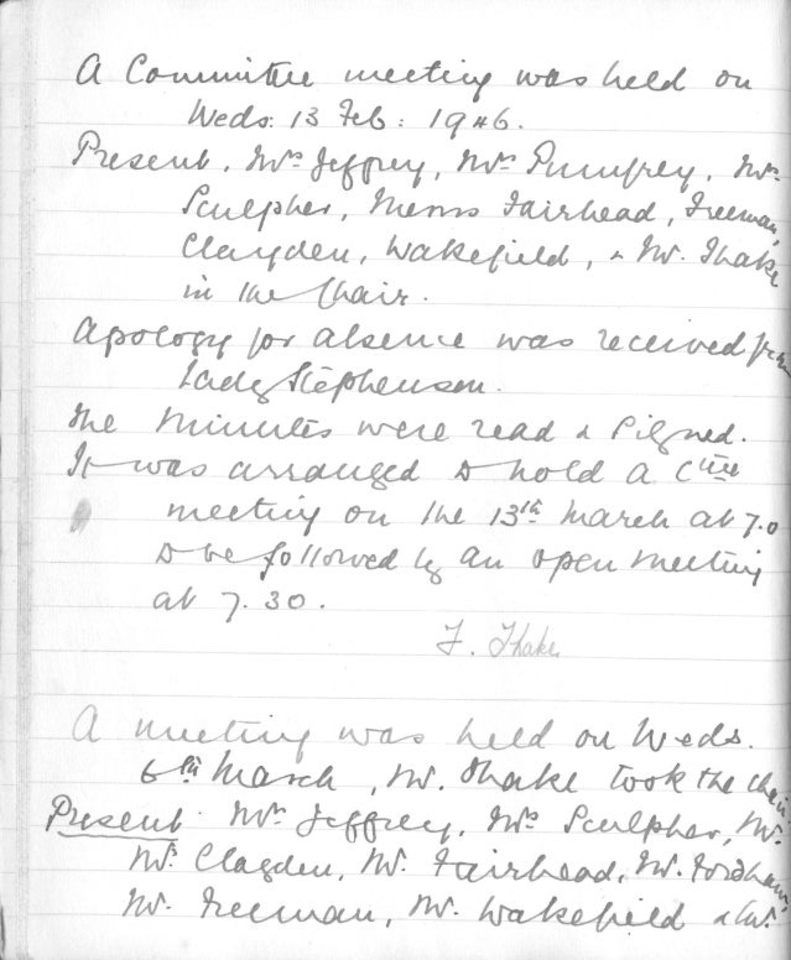 A Committee meeting was held on
Weds: 13 Feb: 1946.
Present. Mrs Jeffrey, Mrs Pumfrey, Mrs
Sculpher, Messrs Fairhead, Freeman,
Clayden, Wakefield, & Mr. Thake
in the Chair.
Apology for absence was received from
Lady Stephenson.
The Minutes were read & signed.
It was arranged to hold a Cttee
meeting on the 13th March at 7.0
to be followed by an open meeting
at 7.30.
F. Thake
A meeting was held on Weds.
6th March, Mr. Thake took the Chair.
Present. Mrs Jeffrey, Mrs Sculpher, Mr.
Mr. Clayden, Mr. Fairhead, Mr. Fordham,
Mr. Freeman, Mr. Wakefield & Mr.